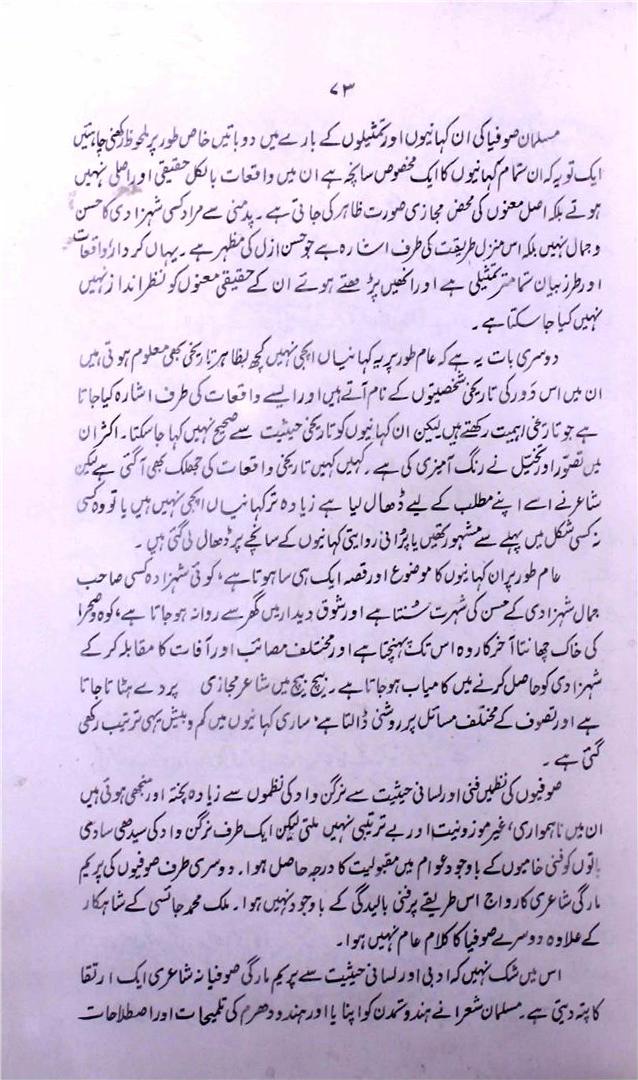 ۷۳
مسلمان صوفیا کی ان کہانیوں اور تمثیلوں کے بارے میں دو باتیں خاص طور پر ملحوظ رکھنی چاہئیں
ایک تو یہ کہ ان تمام کہانیوں کا ایک مخصوص سانچہ ہے ان میں واقعات بالکل حقیقی اور اصلی نہیں
ہوتے بلکہ اصل معنوں کی محض مجازی صورت ظاہر کی جاتی ہے۔ پدمنی سے مراد کسی شہزادی کا حسن
و جمال نہیں بلکہ اس منزلِ طریقت کی طرف اشارہ ہے جو حسن ازل کی مظہر ہے۔ یہاں کردار واقعات
اور طرز بیان تمام تر تمثیلی ہے اور انھیں پڑھتے ہوئے ان کے حقیقی معنوں کو نظر انداز نہیں
نہیں کیا جا سکتا ہے۔
دوسری بات یہ ہے کہ عام طور پر یہ کہانیاں اپجی نہیں کچھ بظاہر تاریخی بھی معلوم ہوتی ہیں
ان میں اس دَور کی تاریخی شخصیتوں کے نام آتے ہیں اور ایسے واقعات کی طرف اشارہ کیا جاتا
ہے جو تاریخی اہمیت رکھتے ہیں لیکن ان کہانیوں کو تاریخی حیثیت سے صحیح نہیں کہا جا سکتا۔ اکثر ان
میں تصوّر اور تخیّل نے رنگ آمیزی کی ہے۔ کہیں کہیں تاریخی واقعات کی جھلک بھی آ گئی ہے لیکن
شاعر نے اسے اپنے مطلب کے لیے ڈھال لیا ہے زیادہ تر کہانیاں اپجی نہیں ہیں یا تو وہ کسی
نہ کسی شکل میں پہلے سے مشہور تھیں یا پُرانی روایتی کہانیوں کے سانچے پر ڈھال لی گئی ہیں۔
عام طور پر ان کہانیوں کا موضوع اور قصہ ایک ہی سا ہوتا ہے، کوئی شہزادہ کسی صاحب
جمال شہزادی کے حسن کی شہرت سُنتا ہے اور شوق دیدار میں گھر سے روانہ ہو جاتا ہے، کوہ و صحرا
کی خاک چھانتا آخر کار وہ اس تک پہنچتا ہے اور مختلف مصائب اور آفات کا مقابلہ کر کے
شہزادی کو حاصل کرنے میں کامیاب ہو جاتا ہے۔ بیچ بیچ میں شاعر مجازی پردے ہٹاتا جاتا
ہے اور تصوف کے مختلف مسائل پر روشنی ڈالتا ہے، ساری کہانیوں میں کم و بیش یہی ترتیب رکھی
گئی ہے۔
صوفیوں کی نظمیں فنی اور لسانی حیثیت سے نرگن واد کی نظموں سے زیادہ پختہ اور منجھی ہوئی ہیں
ان میں ناہمواری، غیر موزونیت اور بے ترتیبی نہیں ملتی لیکن ایک طرف نرگن واد کی سیدھی سادھی
باتوں کو فنّی خامیوں کے باوجود عوام میں مقبولیت کا درجہ حاصل ہوا۔ دوسری طرف صوفیوں کی پریم
مارگی شاعری کا رواج اس طریقے پر فنی بالیدگی کے باوجود نہیں ہوا۔ ملک محمد جائسی کے شاہکار
کے علاوہ دوسرے صوفیا کا کلام عام نہیں ہوا۔
اس میں شک نہیں کہ ادبی اور لسانی حیثیت سے پریم مارگی صوفیانہ شاعری ایک ارتقا
کا پتہ دیتی ہے۔ مسلمان شعرا نے ہندو تمدن کو اپنایا اور ہندو دھرم کی تلمیحات اور اصطلاحات